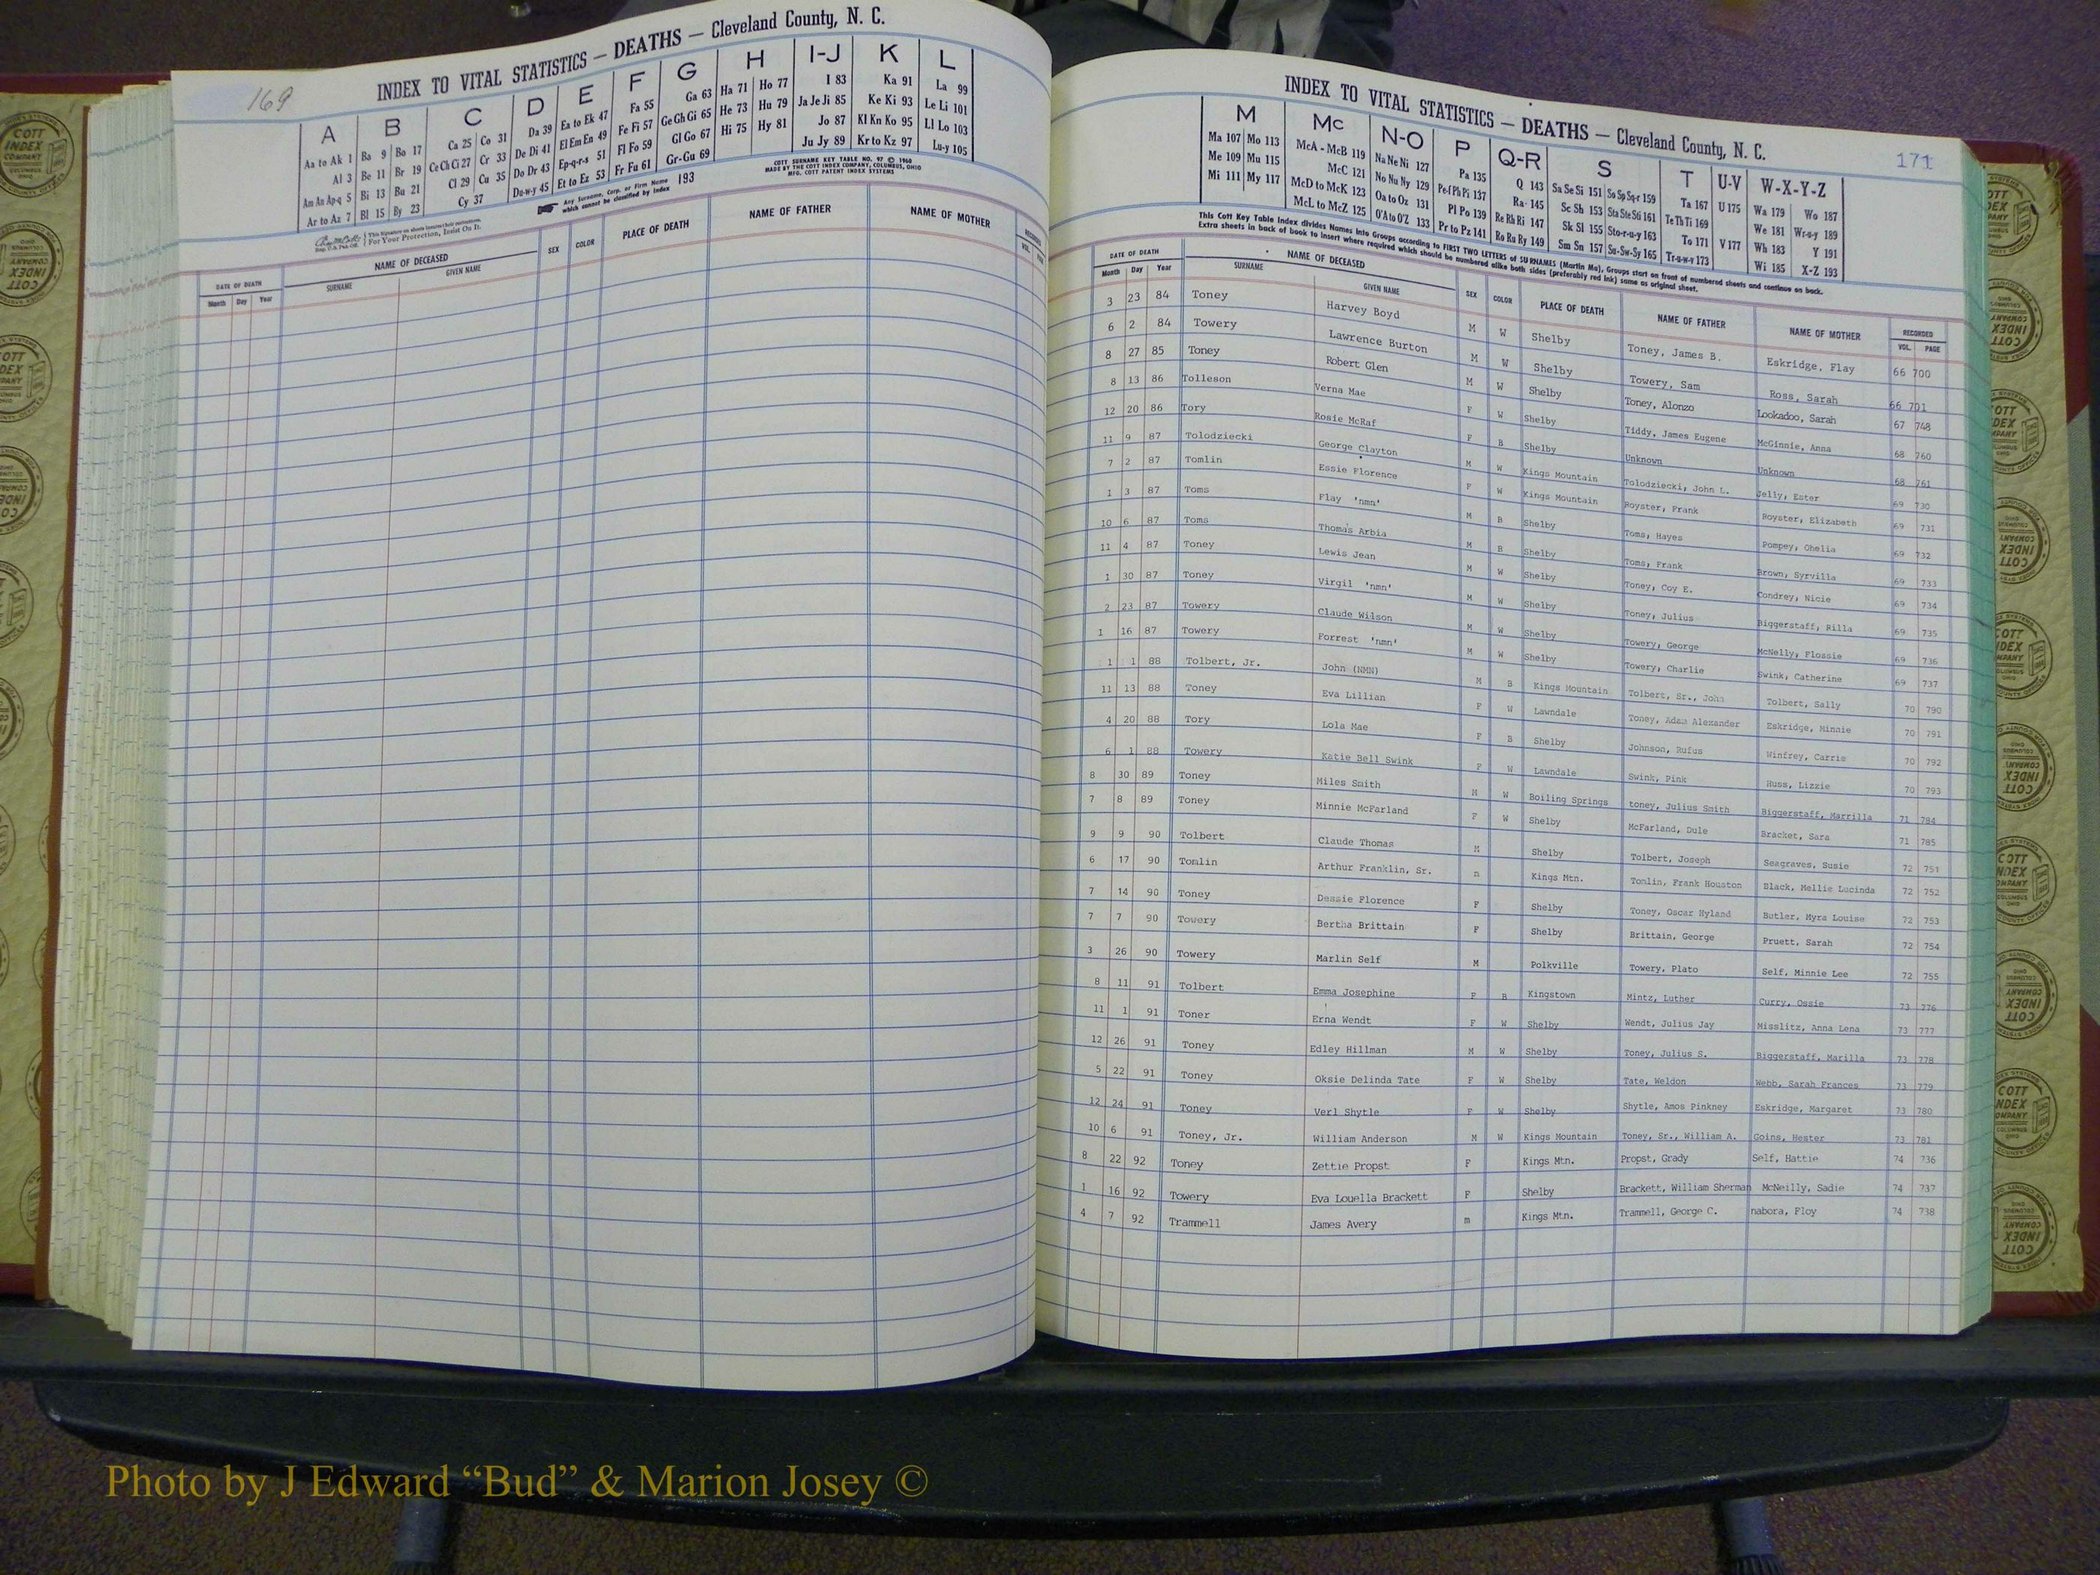 169
INDEX TO VITAL STATISTICS — DEATHS — Cleveland County, N. C.
A B C D E F G H I-J K L
Aa to Ak 1 Ba 9 Bo 17 Ca 25 Co 31 Da 39 Ea to Ek 47 Fa 55 Ga 63 Ha 71 Ho 77 I 83 Ka 91 La 99
Al 3 Be 11 Br 19 Ce Ch Ci 27 Cr 33 De Di 41 El Em En 49 Fe Fi 57 Ge Gh Gi 65 He 73 Hu 79 Ja Je Ji 85 Ke Ki 93 Le Li 101
Am An Ap-q 5 Bi 13 Bu 21 Cl 29 Cu 35 Do Dr 43 Ep-q-r-s 51 Fl Fo 59 Gl Go 67 Hi 75 Hy 81 Jo 87 Kl Kn Ko 95 Ll Lo 103
Ar to Az 7 Bl 15 By 23 Cy 37 Du-w-y 45 Et to Ez 53 Fr Fu 61 Gr-Gu 69 Ju Jy 89 Kr to Kz 97 Lu-y 105
COTT SURNAME KEY TABLE NO. 97 © 1960
MADE BY THE COTT INDEX COMPANY, COLUMBUS, OHIO
MFG. COTT PATENT INDEX SYSTEMS
Any Surname, Corp. or Firm Name
which cannot be classified by index 193
This Signature on sheets insures their genuineness.
For Your Protection, Insist On It.
DATE OF DEATH NAME OF DECEASED SEX COLOR PLACE OF DEATH NAME OF FATHER NAME OF MOTHER RECORDED
Month Day Year SURNAME GIVEN NAME VOL. PAGE
INDEX TO VITAL STATISTICS — DEATHS — Cleveland County, N. C.
171
M Mc N-O P Q-R S T U-V W-X-Y-Z
Ma 107 Mo 113 McA - McB 119 Na Ne Ni 127 Pa 135 Q 143 Sa Se Si 151 So Sp Sq-r 159 Ta 167 U 175 Wa 179 Wo 187
Me 109 Mu 115 McC 121 No Nu Ny 129 Pe-f Ph Pi 137 Ra- 145 Sc Sh 153 Sta Ste Sti 161 Te Th Ti 169 We 181 Wr-u-y 189
Mi 111 My 117 McD to McK 123 Oa to Oz 131 Pl Po 139 Re Rh Ri 147 Sk Sl 155 Sto-r-u-y 163 To 171 V 177 Wh 183 Y 191
McL to McZ 125 O'A to O'Z 133 Pr to Pz 141 Ro Ru Ry 149 Sm Sn 157 Su-Sw-Sy 165 Tr-u-w-y 173 Wi 185 X-Z 193
This Cott Key Table Index divides Names into Groups according to FIRST TWO LETTERS of SURNAMES (Martin Ma), Groups start on front of numbered sheets and continue on back.
Extra sheets in back of book to insert where required which should be numbered alike both sides (preferably red ink) same as original sheet.
DATE OF DEATH NAME OF DECEASED SEX COLOR PLACE OF DEATH NAME OF FATHER NAME OF MOTHER RECORDED
Month Day Year SURNAME GIVEN NAME VOL. PAGE
3 23 84 Toney Harvey Boyd M W Shelby Toney, James B. Eskridge, Flay 66 700
6 2 84 Towery Lawrence Burton M W Shelby Towery, Sam Ross, Sarah 66 701
8 27 85 Toney Robert Glen M W Shelby Toney, Alonzo Lookadoo, Sarah 67 748
8 13 86 Tolleson Verna Mae F W Shelby Tiddy, James Eugene McGinnie, Anna 68 760
12 20 86 Tory Rosie McRaf F B Shelby Unknown Unknown 68 761
11 9 87 Tolodziecki George Clayton M W Kings Mountain Tolodziecki, John L. Jelly, Ester 69 730
7 2 87 Tomlin Essie Florence F W Kings Mountain Royster, Frank Royster, Elizabeth 69 731
1 3 87 Toms Flay 'nmn' M B Shelby Toms, Hayes Pompey, Ohelia 69 732
10 6 87 Toms Thomas Arbia M B Shelby Toms, Frank Brown, Syrvilla 69 733
11 4 87 Toney Lewis Jean M W Shelby Toney, Coy E. Condrey, Nicie 69 734
1 30 87 Toney Virgil 'nmn' M W Shelby Toney, Julius Biggerstaff, Rilla 69 735
2 23 87 Towery Claude Wilson M W Shelby Towery, George McNelly, Flossie 69 736
1 16 87 Towery Forrest 'nmn' M W Shelby Towery, Charlie Swink, Catherine 69 737
1 1 88 Tolbert, Jr. John (NMN) M B Kings Mountain Tolbert, Sr., John Tolbert, Sally 70 790
11 13 88 Toney Eva Lillian F W Lawndale Toney, Adam Alexander Eskridge, Minnie 70 791
4 20 88 Tory Lola Mae F B Shelby Johnson, Rufus Winfrey, Carrie 70 792
6 1 88 Towery Katie Bell Swink F W Lawndale Swink, Pink Huss, Lizzie 70 793
8 30 89 Toney Miles Smith M W Boiling Springs toney, Julius Smith Biggerstaff, Marrilla 71 784
7 8 89 Toney Minnie McFarland F W Shelby McFarland, Dule Bracket, Sara 71 785
9 9 90 Tolbert Claude Thomas M Shelby Tolbert, Joseph Seagraves, Susie 72 751
6 17 90 Tomlin Arthur Franklin, Sr. m Kings Mtn. Tomlin, Frank Houston Black, Mellie Lucinda 72 752
7 14 90 Toney Dessie Florence F Shelby Toney, Oscar Hyland Butler, Myra Louise 72 753
7 7 90 Towery Bertha Brittain F Shelby Brittain, George Pruett, Sarah 72 754
3 26 90 Towery Marlin Self M Polkville Towery, Plato Self, Minnie Lee 72 755
8 11 91 Tolbert Emma Josephine F B Kingstown Mintz, Luther Curry, Ossie 73 776
11 1 91 Toner Erna Wendt F W Shelby Wendt, Julius Jay Misslitz, Anna Lena 73 777
12 26 91 Toney Edley Hillman M W Shelby Toney, Julius S. Biggerstaff, Marilla 73 778
5 22 91 Toney Oksie Delinda Tate F W Shelby Tate, Weldon Webb, Sarah Frances 73 779
12 24 91 Toney Verl Shytle F W Shelby Shytle, Amos Pinkney Eskridge, Margaret 73 780
10 6 91 Toney, Jr. William Anderson M W Kings Mountain Toney, Sr., William A. Goins, Hester 73 781
8 22 92 Toney Zettie Propst F Kings Mtn. Propst, Grady Self, Hattie 74 736
1 16 92 Towery Eva Louella Brackett F Shelby Brackett, William Sherman McNeilly, Sadie 74 737
4 7 92 Trammell James Avery m Kings Mtn. Trammell, George C. nabora, Floy 74 738
COTT
INDEX
COMPANY
COLUMBUS
OHIO
Photo by J Edward “Bud” & Marion Josey ©